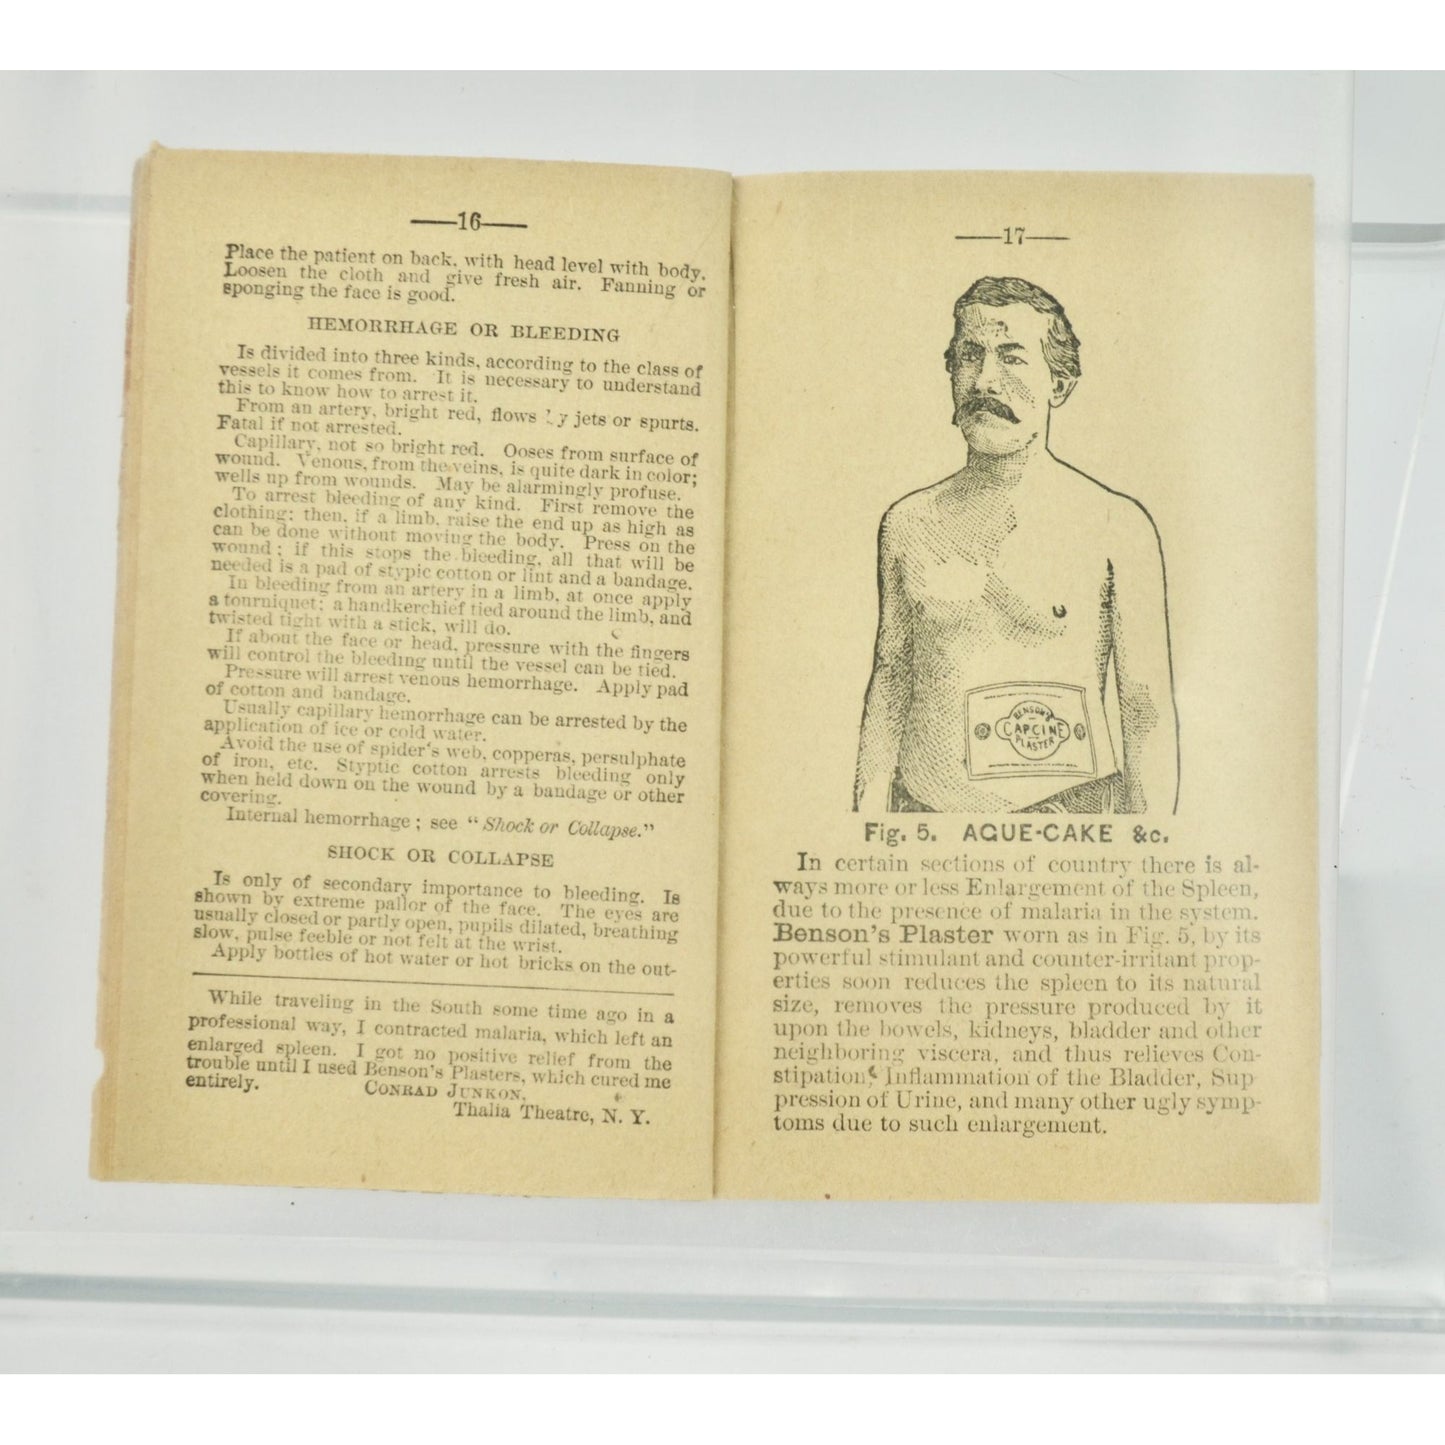 —16—
Place the patient on back, with head level with body.
Loosen the cloth and give fresh air. Fanning or
sponging the face is good.
HEMORRHAGE OR BLEEDING
Is divided into three kinds, according to the class of
vessels it comes from. It is necessary to understand
this to know how to arrest it.
From an artery, bright red, flows by jets or spurts.
Fatal if not arrested.
Capillary, not so bright red. Ooses from surface of
wound. Venous, from the veins, is quite dark in color;
wells up from wounds. May be alarmingly profuse.
To arrest bleeding of any kind. First remove the
clothing; then, if a limb, raise the end up as high as
can be done without moving the body. Press on the
wound; if this stops the bleeding, all that will be
needed is a pad of styptic cotton or lint and a bandage.
In bleeding from an artery in a limb, at once apply
a tourniquet; a handkerchief tied around the limb, and
twisted tight with a stick, will do.
If about the face or head, pressure with the fingers
will control the bleeding until the vessel can be tied.
Pressure will arrest venous hemorrhage. Apply pad
of cotton and bandage.
Usually capillary hemorrhage can be arrested by the
application of ice or cold water.
Avoid the use of spider's web, copperas, persulphate
of iron, etc. Styptic cotton arrests bleeding only
when held down on the wound by a bandage or other
covering.
Internal hemorrhage; see "Shock or Collapse."
SHOCK OR COLLAPSE
Is only of secondary importance to bleeding. Is
shown by extreme pallor of the face. The eyes are
usually closed or partly open, pupils dilated, breathing
slow, pulse feeble or not felt at the wrist.
Apply bottles of hot water or hot bricks on the out-
While traveling in the South some time ago in a
professional way, I contracted malaria, which left an
enlarged spleen. I got no positive relief from the
trouble until I used Benson's Plasters, which cured me
entirely. CONRAD JUNKON,
Thalia Theatre, N. Y.
—17—
BENSON'S
CAPCINE
PLASTER
Fig. 5. AGUE-CAKE &c.
In certain sections of country there is al-
ways more or less Enlargement of the Spleen,
due to the presence of malaria in the system.
Benson's Plaster worn as in Fig. 5, by its
powerful stimulant and counter-irritant prop-
erties soon reduces the spleen to its natural
size, removes the pressure produced by it
upon the bowels, kidneys, bladder and other
neighboring viscera, and thus relieves Con-
stipation, Inflammation of the Bladder, Sup
pression of Urine, and many other ugly symp-
toms due to such enlargement.